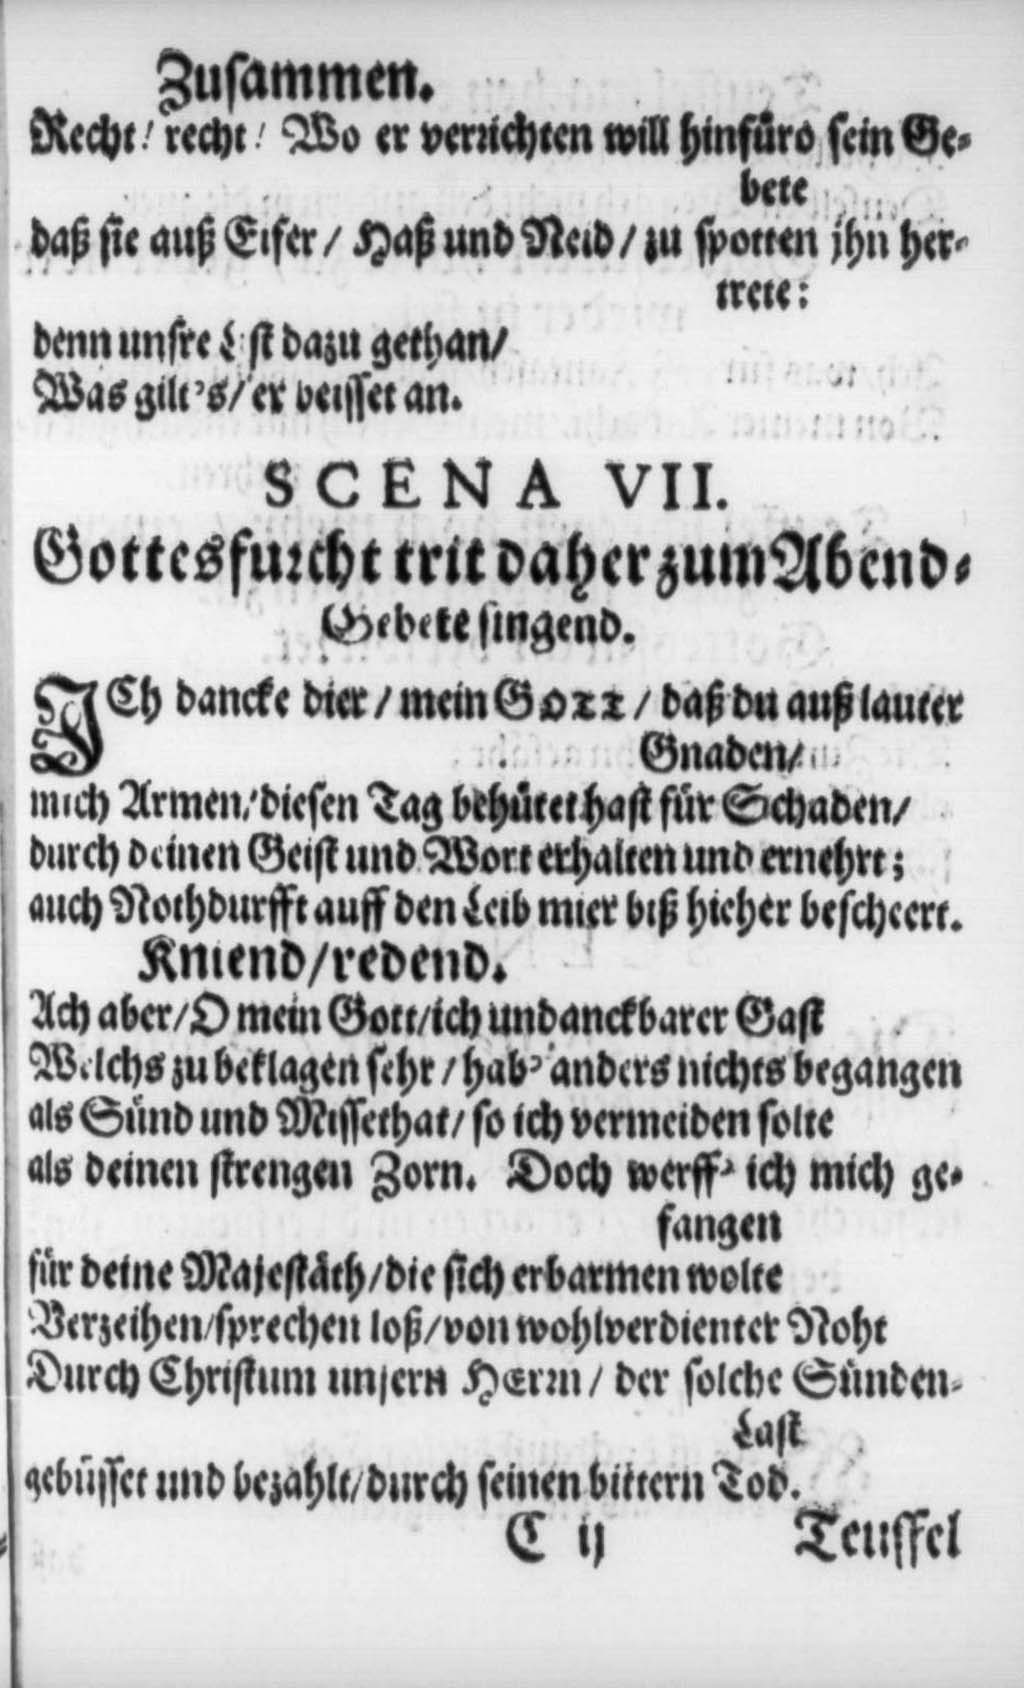 Zusammen.
Recht! recht! Wo er verrichten will hinfüro sein Ge-
bete
daß sie auß Eifer / Haß und Neid / zu spotten jhn her-
trete:
denn unsre List dazu gethan/
Was gilt's/ er beisset an.
SCENA VII.
Gottesfurcht trit daher zum Abend-
Gebete singend.
ICh dancke dier / mein GOTT / daß du auß lauter
Gnaden/
mich Armen/ diesen Tag behütet hast für Schaden/
durch deinen Geist und Wort erhalten und ernehrt;
auch Nothdurfft auff den Leib mier biß hieher bescheert.
Kniend/redend.
Ach aber/O mein Gott/ich undanckbarer Gast
Welchs zu beklagen sehr / hab' anders nichts begangen
als Sünd und Missethat/ so ich vermeiden solte
als deinen strengen Zorn. Doch werff' ich mich ge-
fangen
für deine Majestäth/die sich erbarmen wolte
Verzeihen/sprechen loß/von wohlverdienter Noht
Durch Christum unsern HErrn / der solche Sünden-
Last
gebüsset und bezahlt/durch seinen bittern Tod.
C ij Teuffel